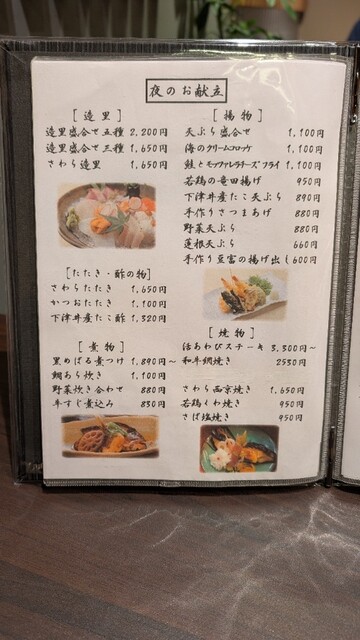 夜のお献立
[造里]
造里盛合せ五種 2,200円
造里盛合せ三種 1,650円
さわら造里 1,650円
[たたき・酢の物]
さわらたたき 1,650円
かつおたたき 1,100円
下津井産たこ酢 1,320円
[煮物]
黒めばる煮つけ 1,890円~
鯛あら炊き 1,100円
野菜炊き合わせ 880円
牛すじ煮込み 830円
[揚物]
天ぷら盛合せ 1,100円
海のクリームコロッケ 1,100円
鮭とモッツァレラチーズフライ 1,100円
若鶏の竜田揚げ 950円
下津井産たこ天ぷら 890円
手作りさつまあげ 880円
野菜天ぷら 880円
蓮根天ぷら 660円
手作り豆富の揚げ出し 600円
[焼物]
活あわびステーキ 3,300円~
和牛網焼き 2530円
さわら西京焼き 1,650円
若鶏くわ焼き 950円
さば塩焼き 950円